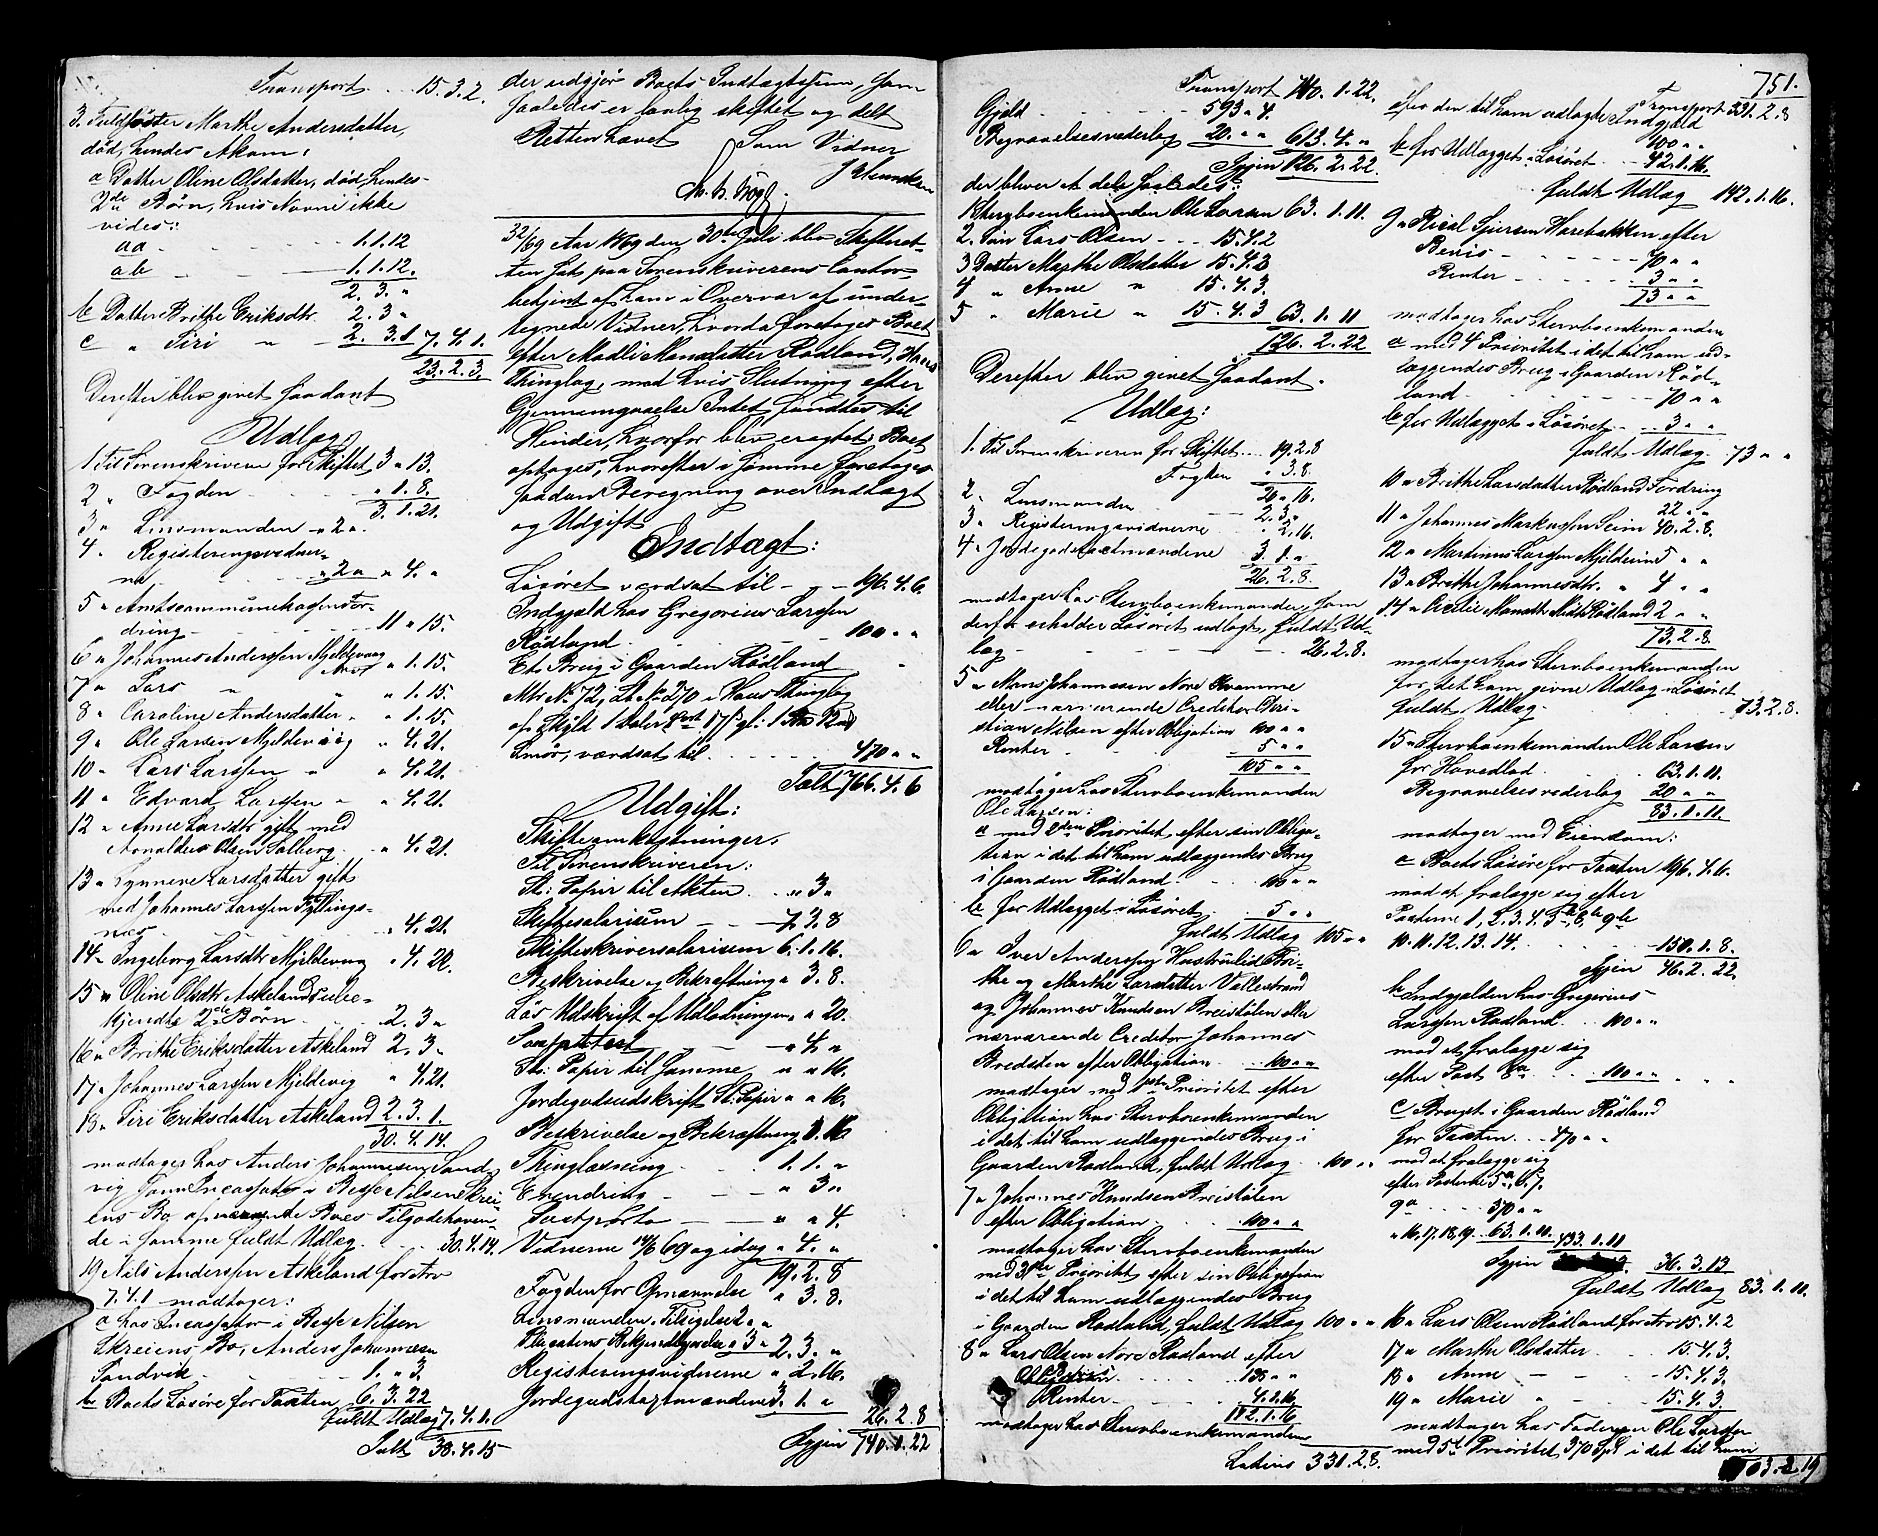 Transport . . 15.3.2.
3. Fuldsøster Marthe Andersdatter,
død, hendes Afkom:
a Datter Oline Olsdatter, død, hendes
2de Børn, hvis Navne ikke
vides:
aa 1.1.12
ab 1.1.12.
2. 3. "
b Datter Brithe Eriksdtr. 2. 3 "
c " Siri " 2. 3.1 7. 4. 1.
23. 2. 3.
Derefter blev givet saadant
Udlæg
1 Til Sorenskriveren for Skiftet 3 " 13.
2 " Fogden " 1. 8.
3. 1. 21.
3 " Linsmanden " 2 " .
4 " Registeringsvidner-
ne " 2 " " 4. "
5 " Amtscommunekassens For-
dring 11 " 15.
6 " Johannes Anderssen Mjeldevaag
Arv " 1. 15.
7 " Lars " " " 1. 15.
8 " Caroline Andersdatter " " 1. 15.
9 " Ole Larsen Mjeldevaag " 4. 21.
10 " Lars Larssen " " 4. 21.
11 " Edvard Larssen " " 4. 21.
12 " Anne Larsdtr. gift med
Arnoldus Olsen Solberg " 4. 21.
13 " Synneve Larsdatter gift
med Johannes Larssen Fyllings-
næs " 4. 21.
14 " Ingeborg Larsdtr. Mjeldevaag " 4. 20.
15 " Oline Olsdtr. Askelands ube-
kjendte 2de Børn 2. 3 "
16 " Brithe Eriksdatter Askeland 2. 3 "
17 " Johannes Larssen Mjeldevig " 4. 21.
18 " Siri Eriksdatter Askeland 2. 3. 1.
30. 4. 14.
modtager hos Anders Johannesen Sand-
vig som Incassator i Besse Nilsen Skrei-
ens Bo af nærværende Boes Tilgodehaven-
de i samme fuldt Udlæg . . . 30. 4. 14.
19 Nils Anderssen Askeland for Arv
7. 4. 1 modtager:
a hos Incassator i Besse Nilsen
Skreiens Bo, Anders Johannesen
Sandvik 1. " 3.
b Boets Løsøre for Taxten 6. 3. 22
fuldt Udlæg 7. 4. 1.
Talt 38. 4. 15
der udgjør Boets Indtægtssum, som
saaledes er lovlig skiftet og delt
Retten hævet Som Vidner
32/69 Aar 1869 den 30te Juli blev Skifteret-
ten sat paa Sorenskriverens Contor
betjent af ham i Overvær af under-
tegnede Vidner, hvorda foretoges Boet
efter Madli Monsdatter Rødland, Haus
Thinglag, mod hvis Slutning efter
Gjennemgaaelse Intet fandtes til
Hinder, hvorfor blev eragtet: Boet
optages, hvorefter i samme foretoges
saadan Beregning over Indtægt
og Udgift
Indtægt:
Løsøret værdsat til - - - 196. 4. 6
Indgjæld hos Gregorius Larssen
Rødland 100 " "
Et Brug i Gaarden Rødland
Mtr No. 72, Lb. No. 270 i Haus Thinglag
af Skyld 1 Daler
Smør, værdsat til 470 " "
Talt 766. 4. 6
Udgift:
Skifteomkostninger.
Til Sorenskriveren:
St: Papir til Akten . . " 3 "
Skiftesalarium 7. 3. 8
Skifteskriversalarium 6. 1. 16.
Beskrivelse og Bekræftning " 3. 8.
Løs Udskrift af Udlodningen " " 20.
" 4. "
St: Papir til samme " " 16.
Jordegodsudskrift St: Papir " " 16.
Beskrivelse og Bekræftning 1. 16.
Thinglæsning 1. 1. "
" 3 "
Postporto " " 4.
Vidnerne 14/6 69 og idag " 4. "
19. 2. 8
Fogden for Opnævnelse " 3. 8.
Linsmanden: Tilsigelse 2 " "
Placatens Bekjendtgjørelse " 3 " 2. 3. "
Registeringsvidnerne " 2. 16.
Jordegodstaxtmændene 3. 1. " 26. 2. 8
Igjen 740. 1. 22
Transport 740. 1. 22.
Gjæld 593 " 4.
Begravelsesvederlag 20. " " 613. 4. "
Igjen 126. 2. 22.
der bliver at dele saaledes:
1 Stervboenkemanden Ole Larsen 63. 1. 11.
2. Søn Lars Olsen 15. 4. 2
3 Datter Marthe Olsdatter 15. 4. 3
4 " Anne " 15. 4. 3.
5 " Marie " 15. 4. 3 63. 1. 11
126. 2. 22
Derefter blev givet saadant.
Udlæg:
1. Til Sorenskriveren for Skiftet . . 19. 2. 8
Fogden " 3. 8.
20. " 16.
2. Linsmanden 2. 3 "
3 " Registeringsvidnerne " 2. 16.
4 " Jordegodstaxtmændene 3. 1. "
26. 2. 8.
modtager hos Stervboenkemanden som
derfor erholder Løsøret udlagt, fuldt Ud-
læg 26. 2. 8.
5 " Mons Johannessen Nore Kvamme
eller nærværende Creditor Chri-
stian Nilsen efter Obligation 100 " "
Renter 5 " "
105 " "
modtager hos Stervboenkemanden
Ole Larsen:
a med 2den Prioritet, efter sin Obliga-
tion i det til ham udlæggendes Brug
i Gaarden Rødland 100 " "
b for Udlægget i Løsøret 5 " "
fuldt Udlæg 105 " "
6 " Iver Anderssen Hustrulid Bri-
the og Marthe Larsdatter Vallestrand
og Johannes Knudsen Breistølen eller
nærværende Creditor Johannes
Bredsten efter Obligation 100 " "
modtager med 1ste Prioritet efter
Obligation hos Stervboenkemanden
i det til ham udlæggendes Brug i
Gaarden Rødland, fuldt Udlæg . 100 " "
7 " Johannes Knudsen Breistølen
efter Obligation 100 " "
modtager hos Stervboenkemanden
med 3die Prioritet efter sin Obligation
i det til ham udlæggendes Brug
i Gaarden Rødland, fuldt Udlæg 100 " "
8 " Lars Olsen Nore Rødland efter
Renter 4. 1. 16.
142. 1. 16
modtager hos Stervboenkemanden
Lateris 331. 2. 8.
751.
Transport 331. 2. 8
for den til ham udlagte Indgjæld
100 " "
b for Udlægget i Løsøret 42. 1. 16.
fuldt Udlæg 142. 1. 16.
9 " Rical Sjursen Harebakken efter
Bevis 70 " "
Renter 3 " "
73 " "
modtager hos Stervboenkemanden
a med 4 Prioritet i det til ham ud-
læggendes Brug i Gaarden Rød-
land 70 " "
b for Udlægget i Løsøret 3 " "
fuldt Udlæg 73 " "
10 " Brithe Larsdatter Rødland Fordring
22 " "
11 " Johannes Markussen Seim 40. 2. 8.
12 " Martinus Larssen Mjeldeim 5 " "
13 " Brithe Johannesdtr. " 4 " "
14 " Cicilie Monsdtr. Midt Rødland 2 " "
73. 2. 8.
modtager hos Stervboenkemanden
for det ham givne Udlæg i Løsøret
fuldt Udlæg 73. 2. 8.
15 " Stervboenkemanden Ole Larsen
for Hovedlod 63. 1. 11.
Begravelsesvederlag 20 " "
83. 1. 11.
modtager med Eiendom:
a Boets Løsøre for Taxten 196. 4. 6.
mod at fralægge sig efter
Posterne 1, 2. 3. 4. 5b, 8b 9b
10. 11. 12. 13. 14. 150. 1. 8.
Igjen 46. 2. 22.
b Indgjælden hos Gregorius
Larssen Rødland . . 100 " "
mod at fralægge sig
efter Post 8a . . . 100 " " " " "
c Bruget i Gaarden Rødland
for Taxten . . . 470 " "
mod at fralægge sig
efter Posterne 5a, 6. 7.
9a . . . . 370 " "
" 16, 17, 18, 19. 63. 1. 11.
433. 1. 11
Igjen 36. 3. 13
fuldt Udlæg 83. 1. 11.
16 " Lars Olsen Rødland for Arv 15. 4. 2
17 " Marthe Olsdatter 15. 4. 3.
18 " Anne - - 15. 4. 3.
19 " Marie " 15. 4. 3
modtager hos Faderen Ole Larsen
med 5te Prioritet 370 Spd i det til ham
703. 2. 19